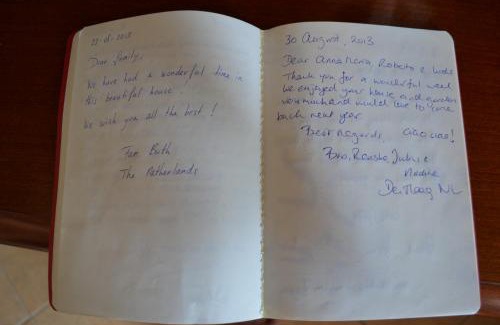 22-08-2013
Dear family,
We have had a wonderful time in
this beautiful house.
We wish you all the best!
Fam Both
The Netherlands
30 August, 2013
Dear Anna Maria, Roberto e
Thank you for a wonderful week
We enjoyed your house and garden
very much and would love to come
back next year.
Best regards, ciao ciao!
Nadine
Den Haag NL